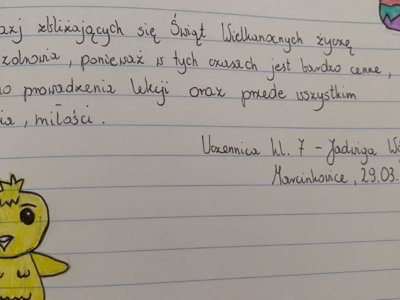 zbliżających się Świąt Wielkanocnych życzę
zdrowia, ponieważ w tych czasach jest bardzo cenne,
prowadzenia lekcji oraz przede wszystkim
miłości.
Uczennica kl. 7 - Jadwiga
Marcinkowice, 29.03.